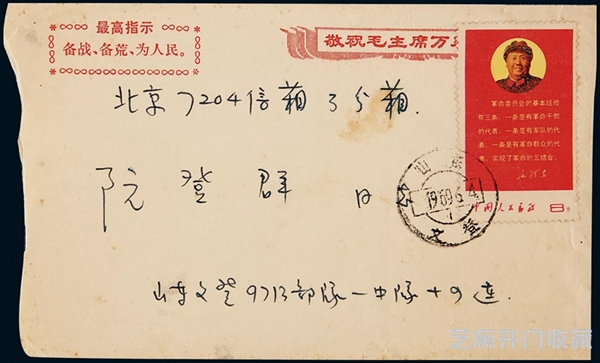 最高指示
备战、备荒、为人民。
敬祝毛主席万
北京7204信箱3分箱
阮登群
革命委员会的基本经验
有三条：一条是有革命干部
的代表，一条是有军队的代
表，一条是有革命群众的代
表，实现了革命的三结合。
毛泽东
中国人民邮政 8分
山东
1969.6.4
1
文登
山东文登9713部队一中队十9连
芝麻开门收藏